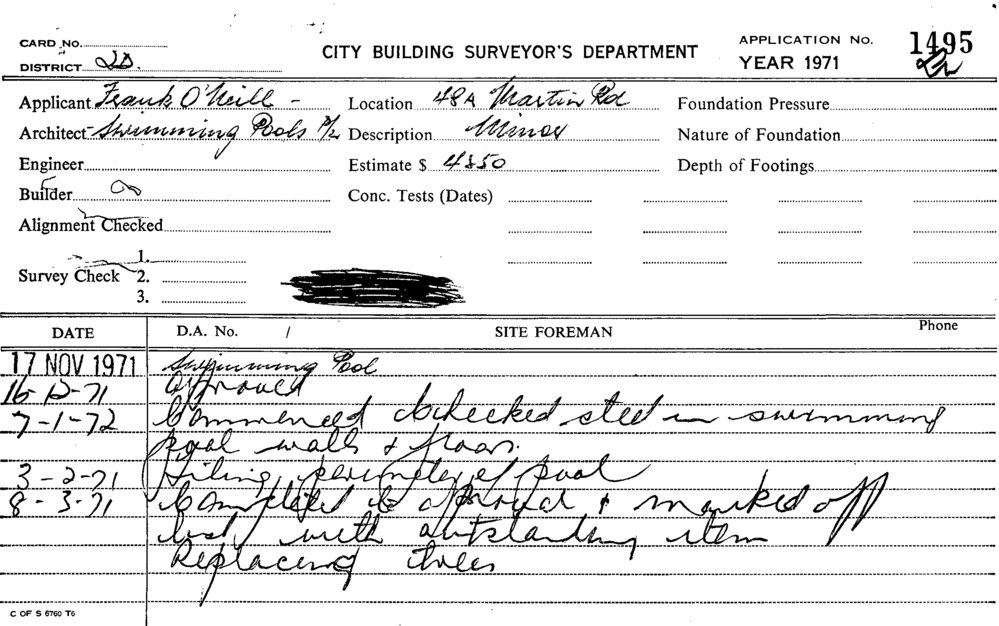 CARD NO.
DISTRICT
CITY BUILDING SURVEYOR'S DEPARTMENT
APPLICATION No. 1495
YEAR 1971
Applicant Frank O'Neill - Location 48A Martin Rd Foundation Pressure
Architect Swimming Pools P/L Description Minor Nature of Foundation
Engineer Estimate $ 4850 Depth of Footings
Builder Conc. Tests (Dates)
Alignment Checked
1.
Survey Check 2.
3.
DATE D.A. No. / SITE FOREMAN Phone
17 NOV 1971 Swimming Pool
16-12-71 Approved
7-1-72 Commenced checked steel in swimming
pool walls & floor.
3-2-71 Tiling perimeter of pool
8-3-71 Completed to approval & marked off
with outstanding item
Replacing trees
C OF S 6760 T6